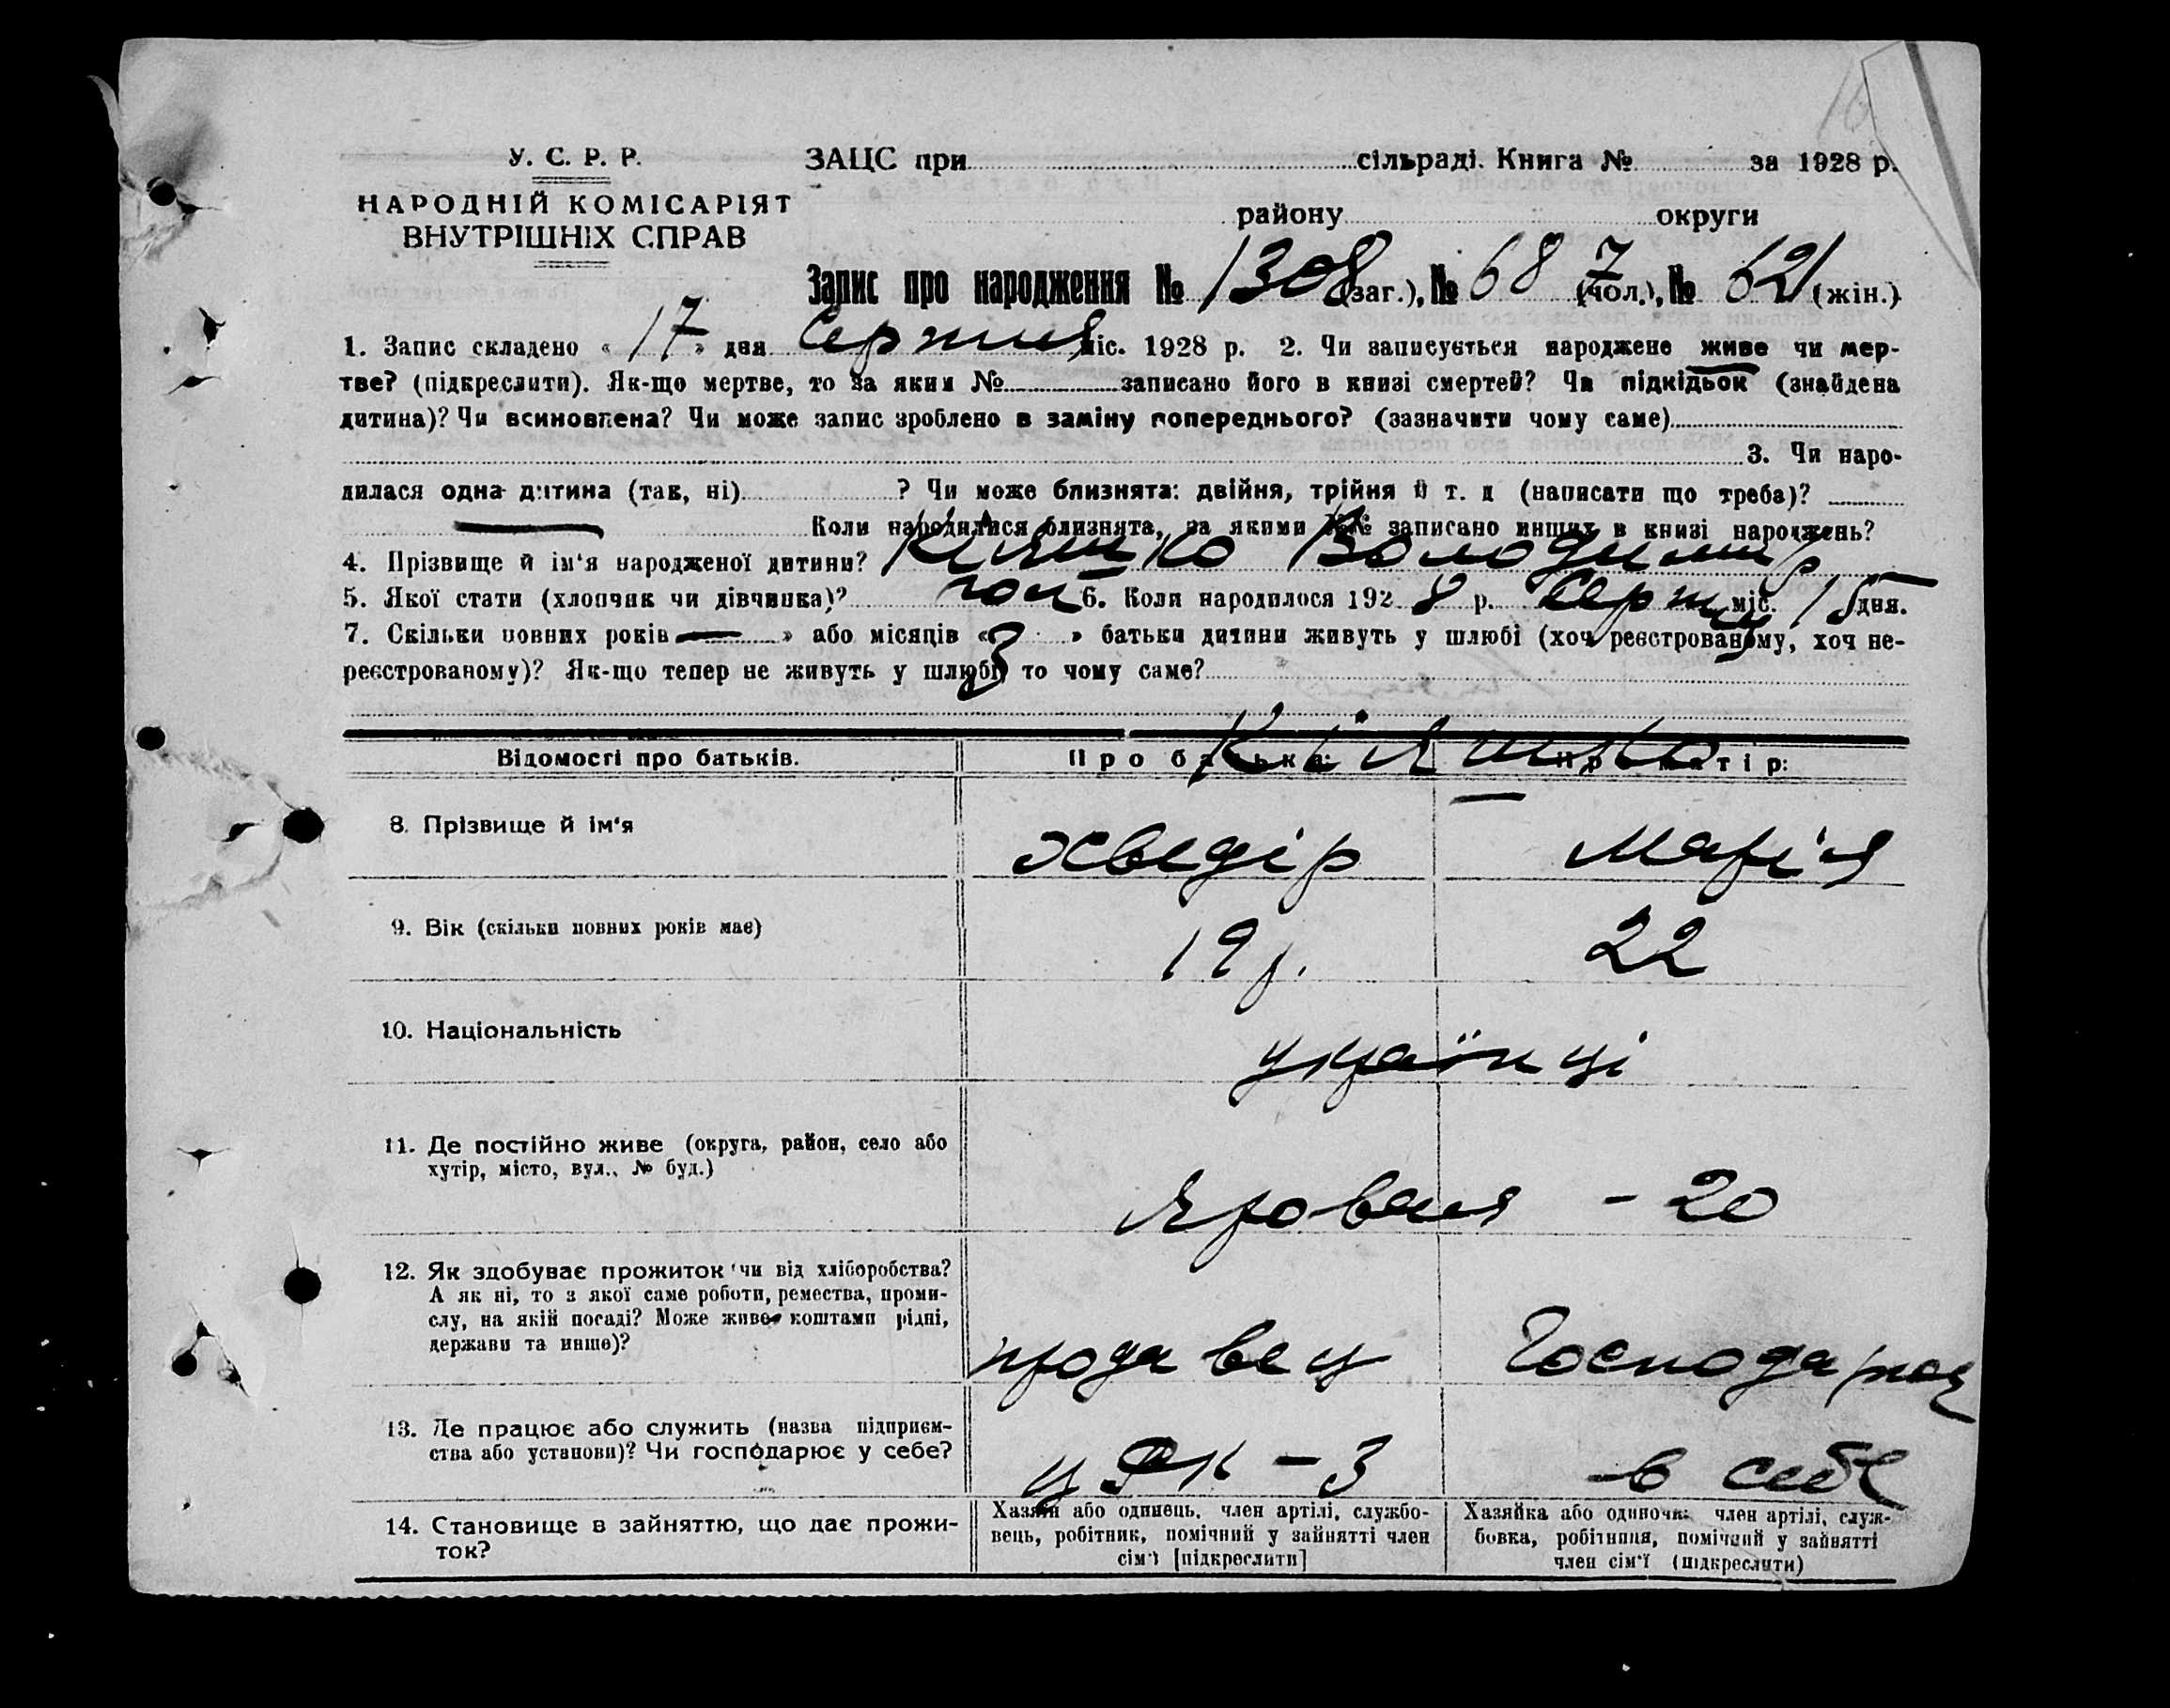 У. С. Р. Р.
НАРОДНІЙ КОМІСАРІЯТ
ВНУТРІШНІХ СПРАВ
ЗАЦС при сільраді. Книга № за 1928 р.
району округи
Запис про народження № 1308 (заг.), № 687 (чол.), № 621 (жін.)
1. Запис складено « 17 » дня Серпня міс. 1928 р. 2. Чи записується народжене живе чи мер-
тве? (підкреслити). Як-що мертве, то за яким № записано його в книзі смертей? Чи підкідьок (знайдена
дитина)? Чи всиновлена? Чи може запис зроблено в заміну попереднього? (зазначити чому саме)
3. Чи наро-
дилася одна дитина (так, ні) ? Чи може близнята: двійня, трійня й т. д (написати що треба)?
Коли народилися близнята, за якими №№ записано инших в книзі народжень?
4. Прізвище й ім'я народженої дитини? Кіяшко Володимир
5. Якої стати (хлопчик чи дівчинка)? чол 6. Коли народилося 1928 р. Серпня міс. 15 дня.
7. Скільки повних років — » або місяців « 3 » батьки дитини живуть у шлюбі (хоч реєстрованому, хоч не-
реєстрованому)? Як-що тепер не живуть у шлюбі, то чому саме?
Відомості про батьків. Про батька: Про матір:
Кіяшко
8. Прізвище й ім'я Хведір Марія
9. Вік (скільки повних років має) 19 р. 22
10. Національність українці
11. Де постійно живе (округа, район, село або
хутір, місто, вул., № буд.)
Ярова - 20
12. Як здобуває прожиток чи від хліборобства?
А як ні, то з якої саме роботи, ремества, проми-
слу, на якій посаді? Може живе коштами рідні,
держави та инше)?
продавець Господарює
13. Де працює або служить (назва підприєм-
ства або установи)? Чи господарює у себе?
- 3 в себе
14. Становище в зайняттю, що дає прожи-
ток?
Хазяїн або одинець, член артілі, службо-
вець, робітник, помічний у зайнятті член
сім'ї [підкреслити]
Хазяйка або одиночка, член артілі, служ-
бовка, робітниця, помічний у зайнятті
член сім'ї (підкреслити)